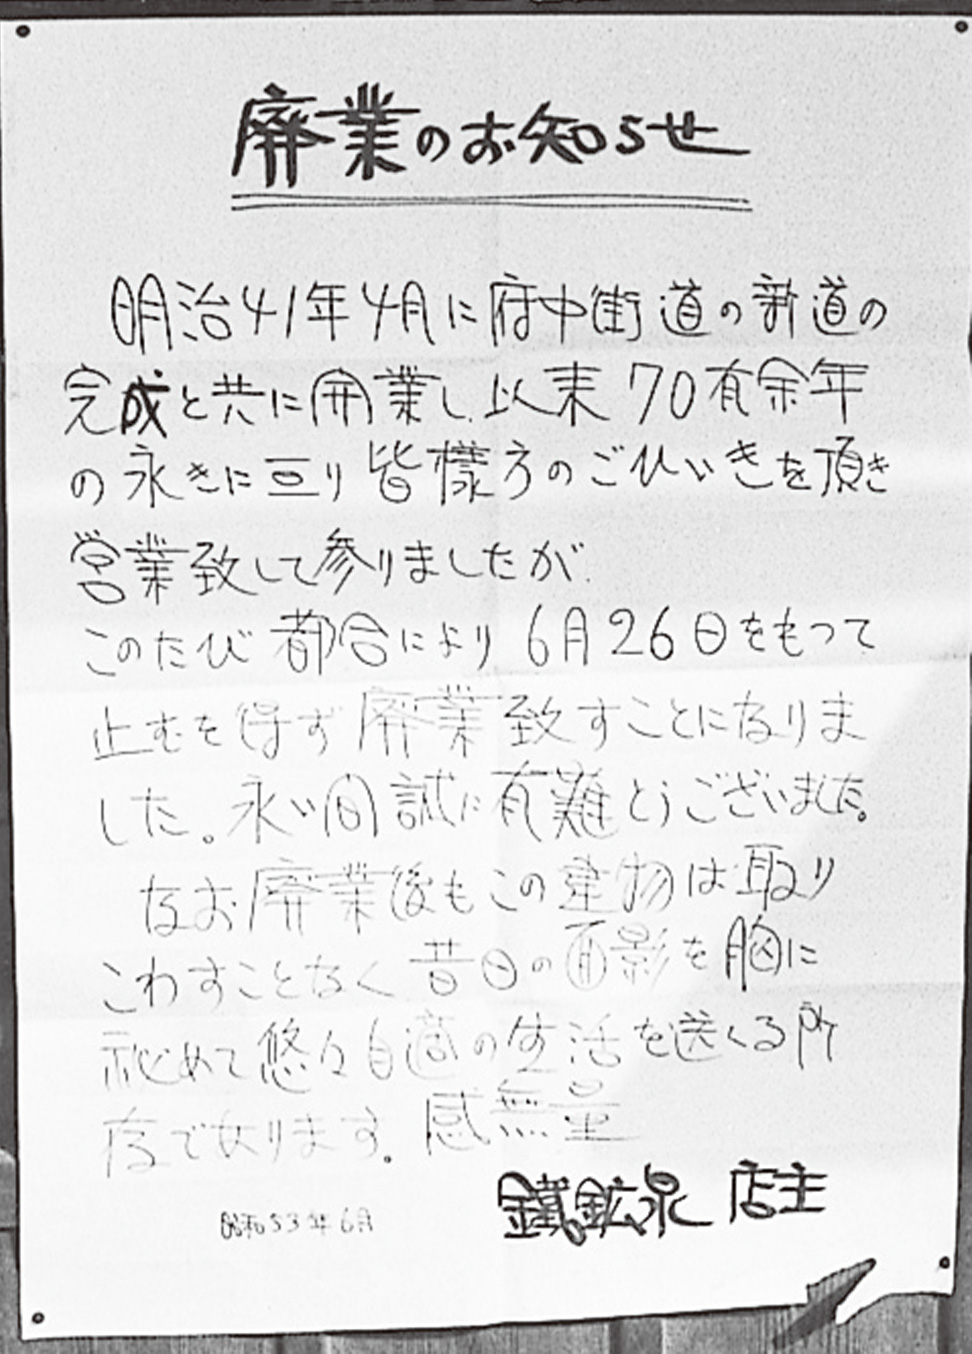 廃業のお知らせ
明治41年4月に府中街道の新道の
完成と共に開業し、以来70有余年
の永きに亘り皆様方のごひいきを頂き
営業致して参りましたが、
このたび都合により6月26日をもって
止むを得ず廃業致すことになりま
した。永い間誠に有難とうございました。
なお廃業後もこの建物は取り
こわすことなく昔日の面影を胸に
秘めて悠々自適の生活を送くる所
存であります。感無量
鐵鉱泉 店主
昭和53年6月